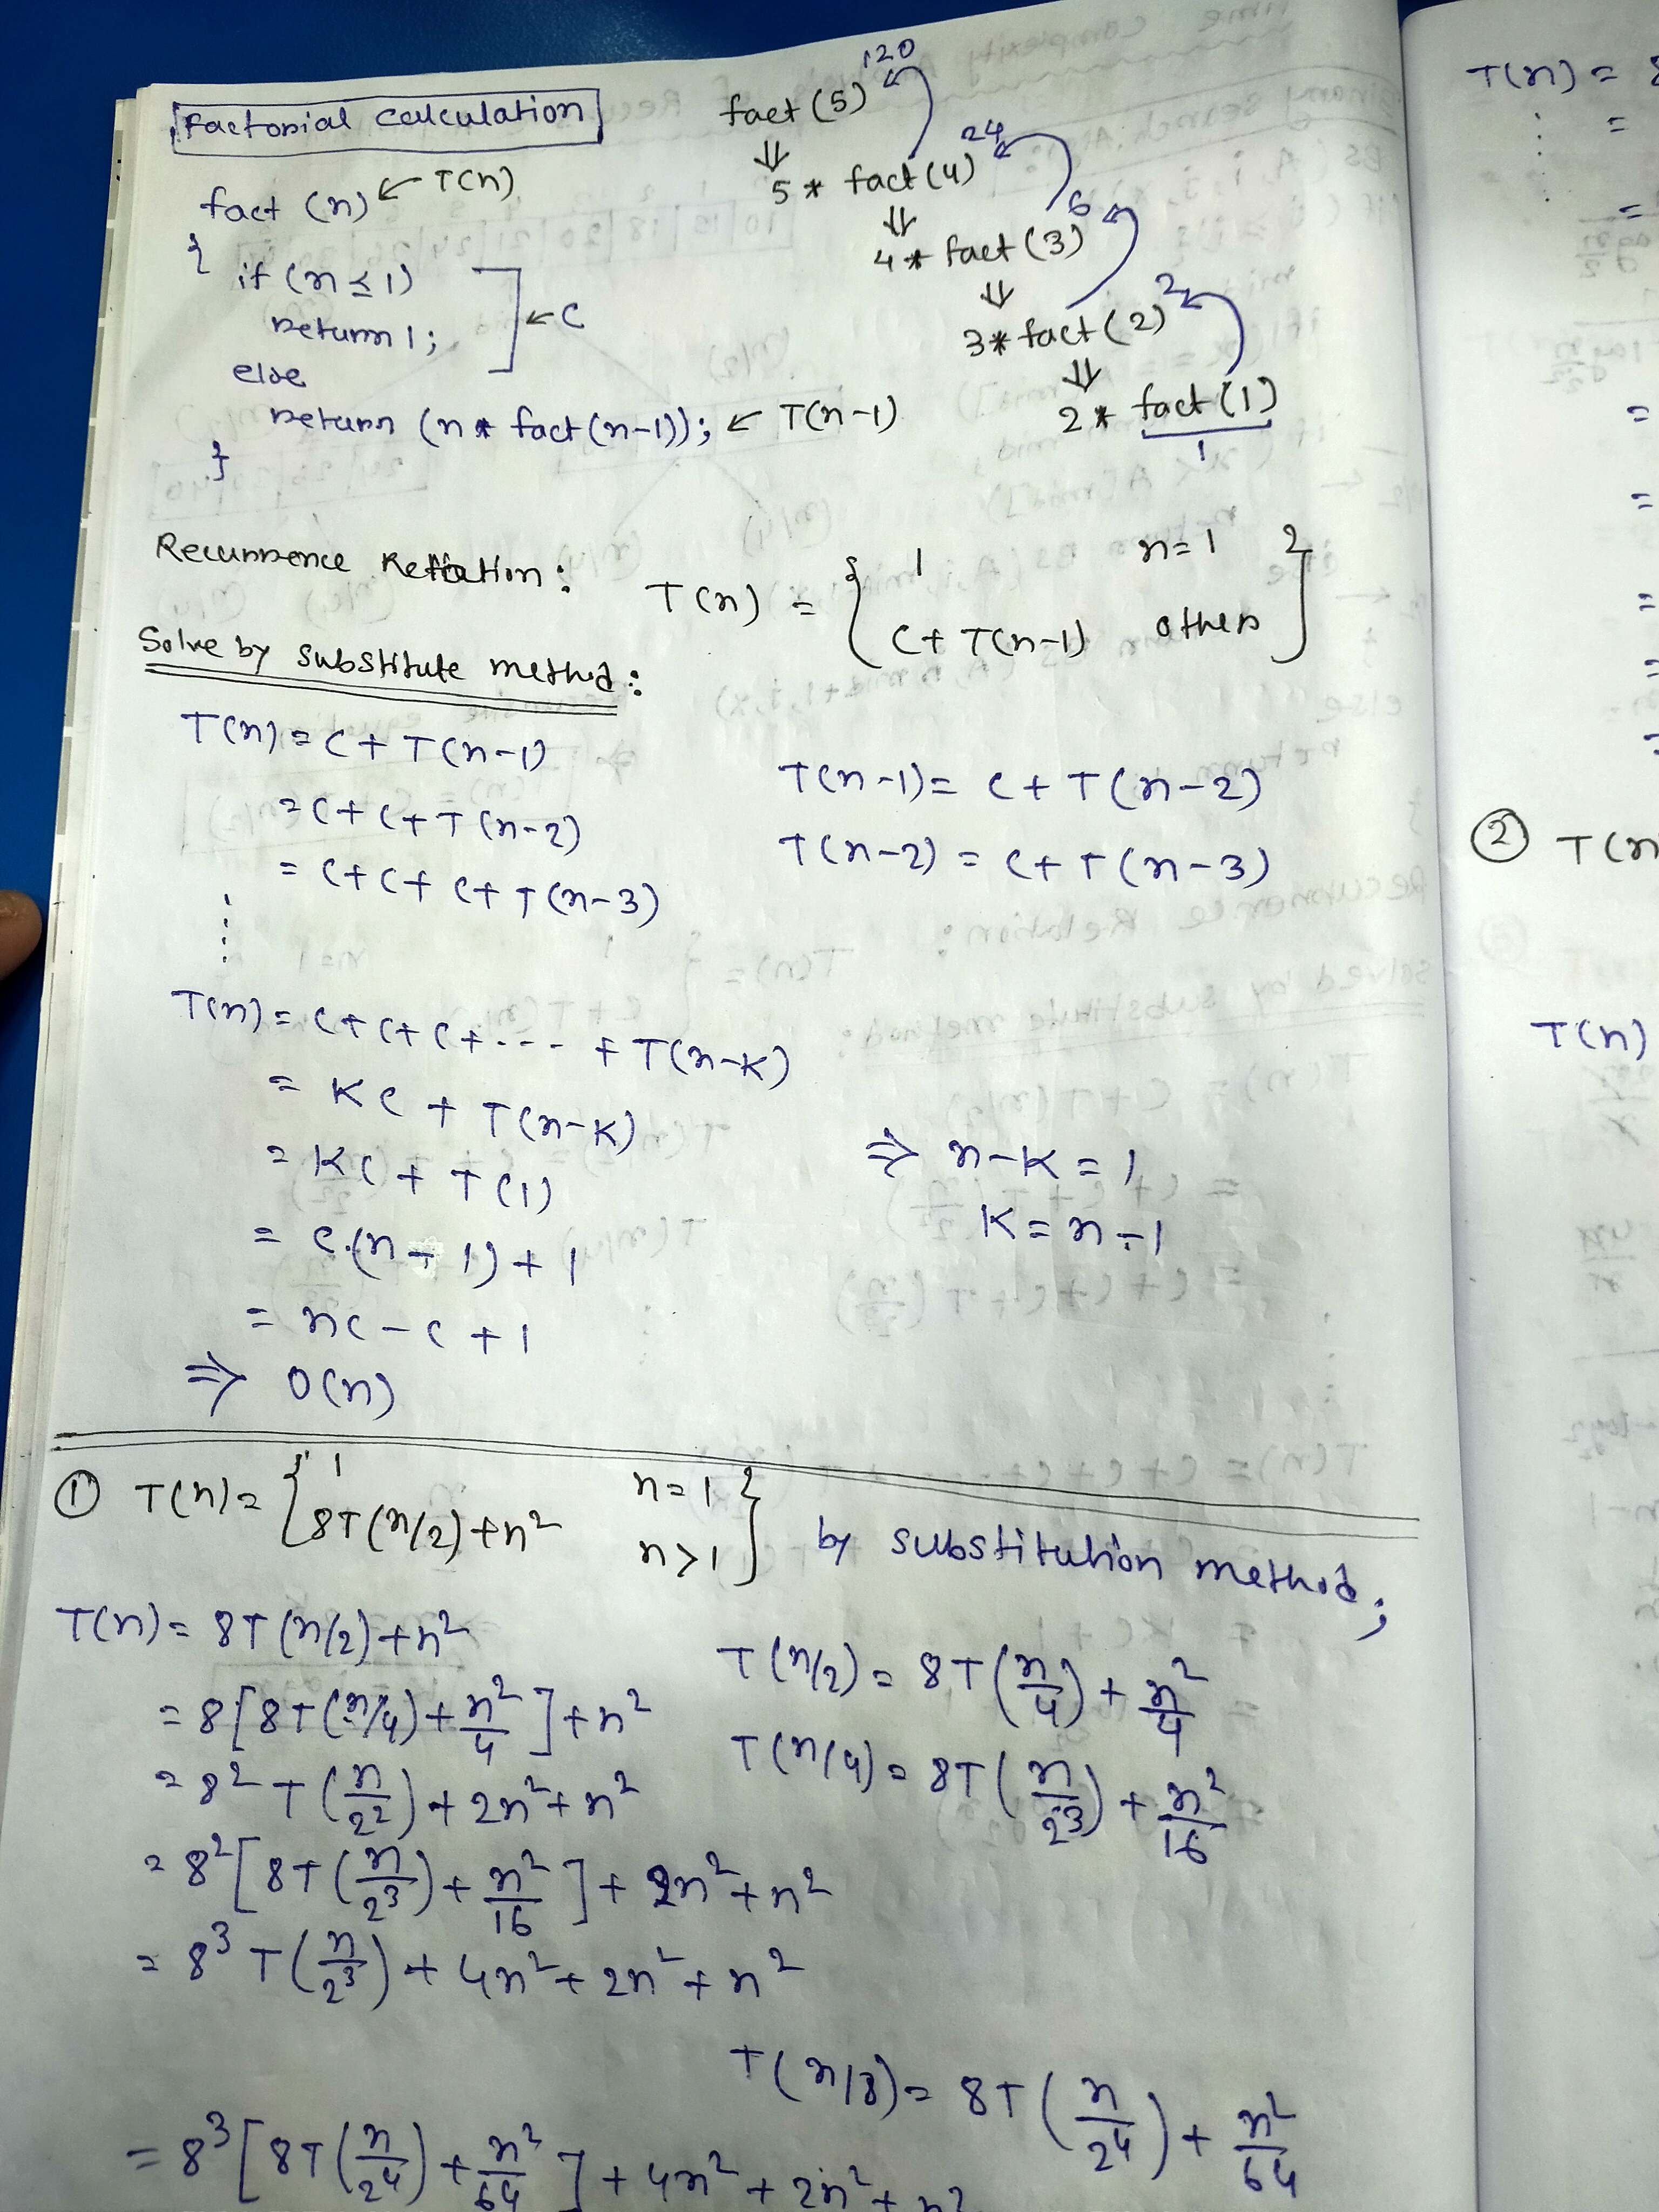 Factorial calculation
fact (n) ← T(n)
{
if (n ≤ 1)
return 1;
← C
else
return (n * fact(n-1)); ← T(n-1)
}
120
fact (5)
⇓
24
5 * fact (4)
⇓
6
4 * fact (3)
⇓
2
3 * fact (2)
⇓
2 * fact (1)
1
Recurrence Relation: T(n) = { 1 n=1
C + T(n-1) others }
Solve by substitute method:
T(n) = C + T(n-1)
= C + C + T(n-2)
= C + C + C + T(n-3)
T(n-1) = C + T(n-2)
T(n-2) = C + T(n-3)
⋮
T(n) = C + C + C + ---- + T(n-K)
= KC + T(n-K)
= KC + T(1)
= C.(n-1) + 1
= nC - C + 1
⇒ O(n)
⇒ n-K = 1
K = n-1
① T(n) = { 1 n=1
8T(n/2) + n² n>1 } by substitution method;
T(n) = 8T(n/2) + n²
= 8[8T(n/4) + n²/4] + n²
= 8² T(n/2²) + 2n² + n²
= 8²[8T(n/2³) + n²/16] + 2n² + n²
= 8³ T(n/2³) + 4n² + 2n² + n²
T(n/2) = 8T(n/4) + n²/4
T(n/4) = 8T(n/2³) + n²/16
T(n/8) = 8T(n/2⁴) + n²/64
= 8³[8T(n/2⁴) + n²/64] + 4n² + 2n² + n²
T(n) = 8
⋮ =
=
=
=
=
=
② T(n
T(n)